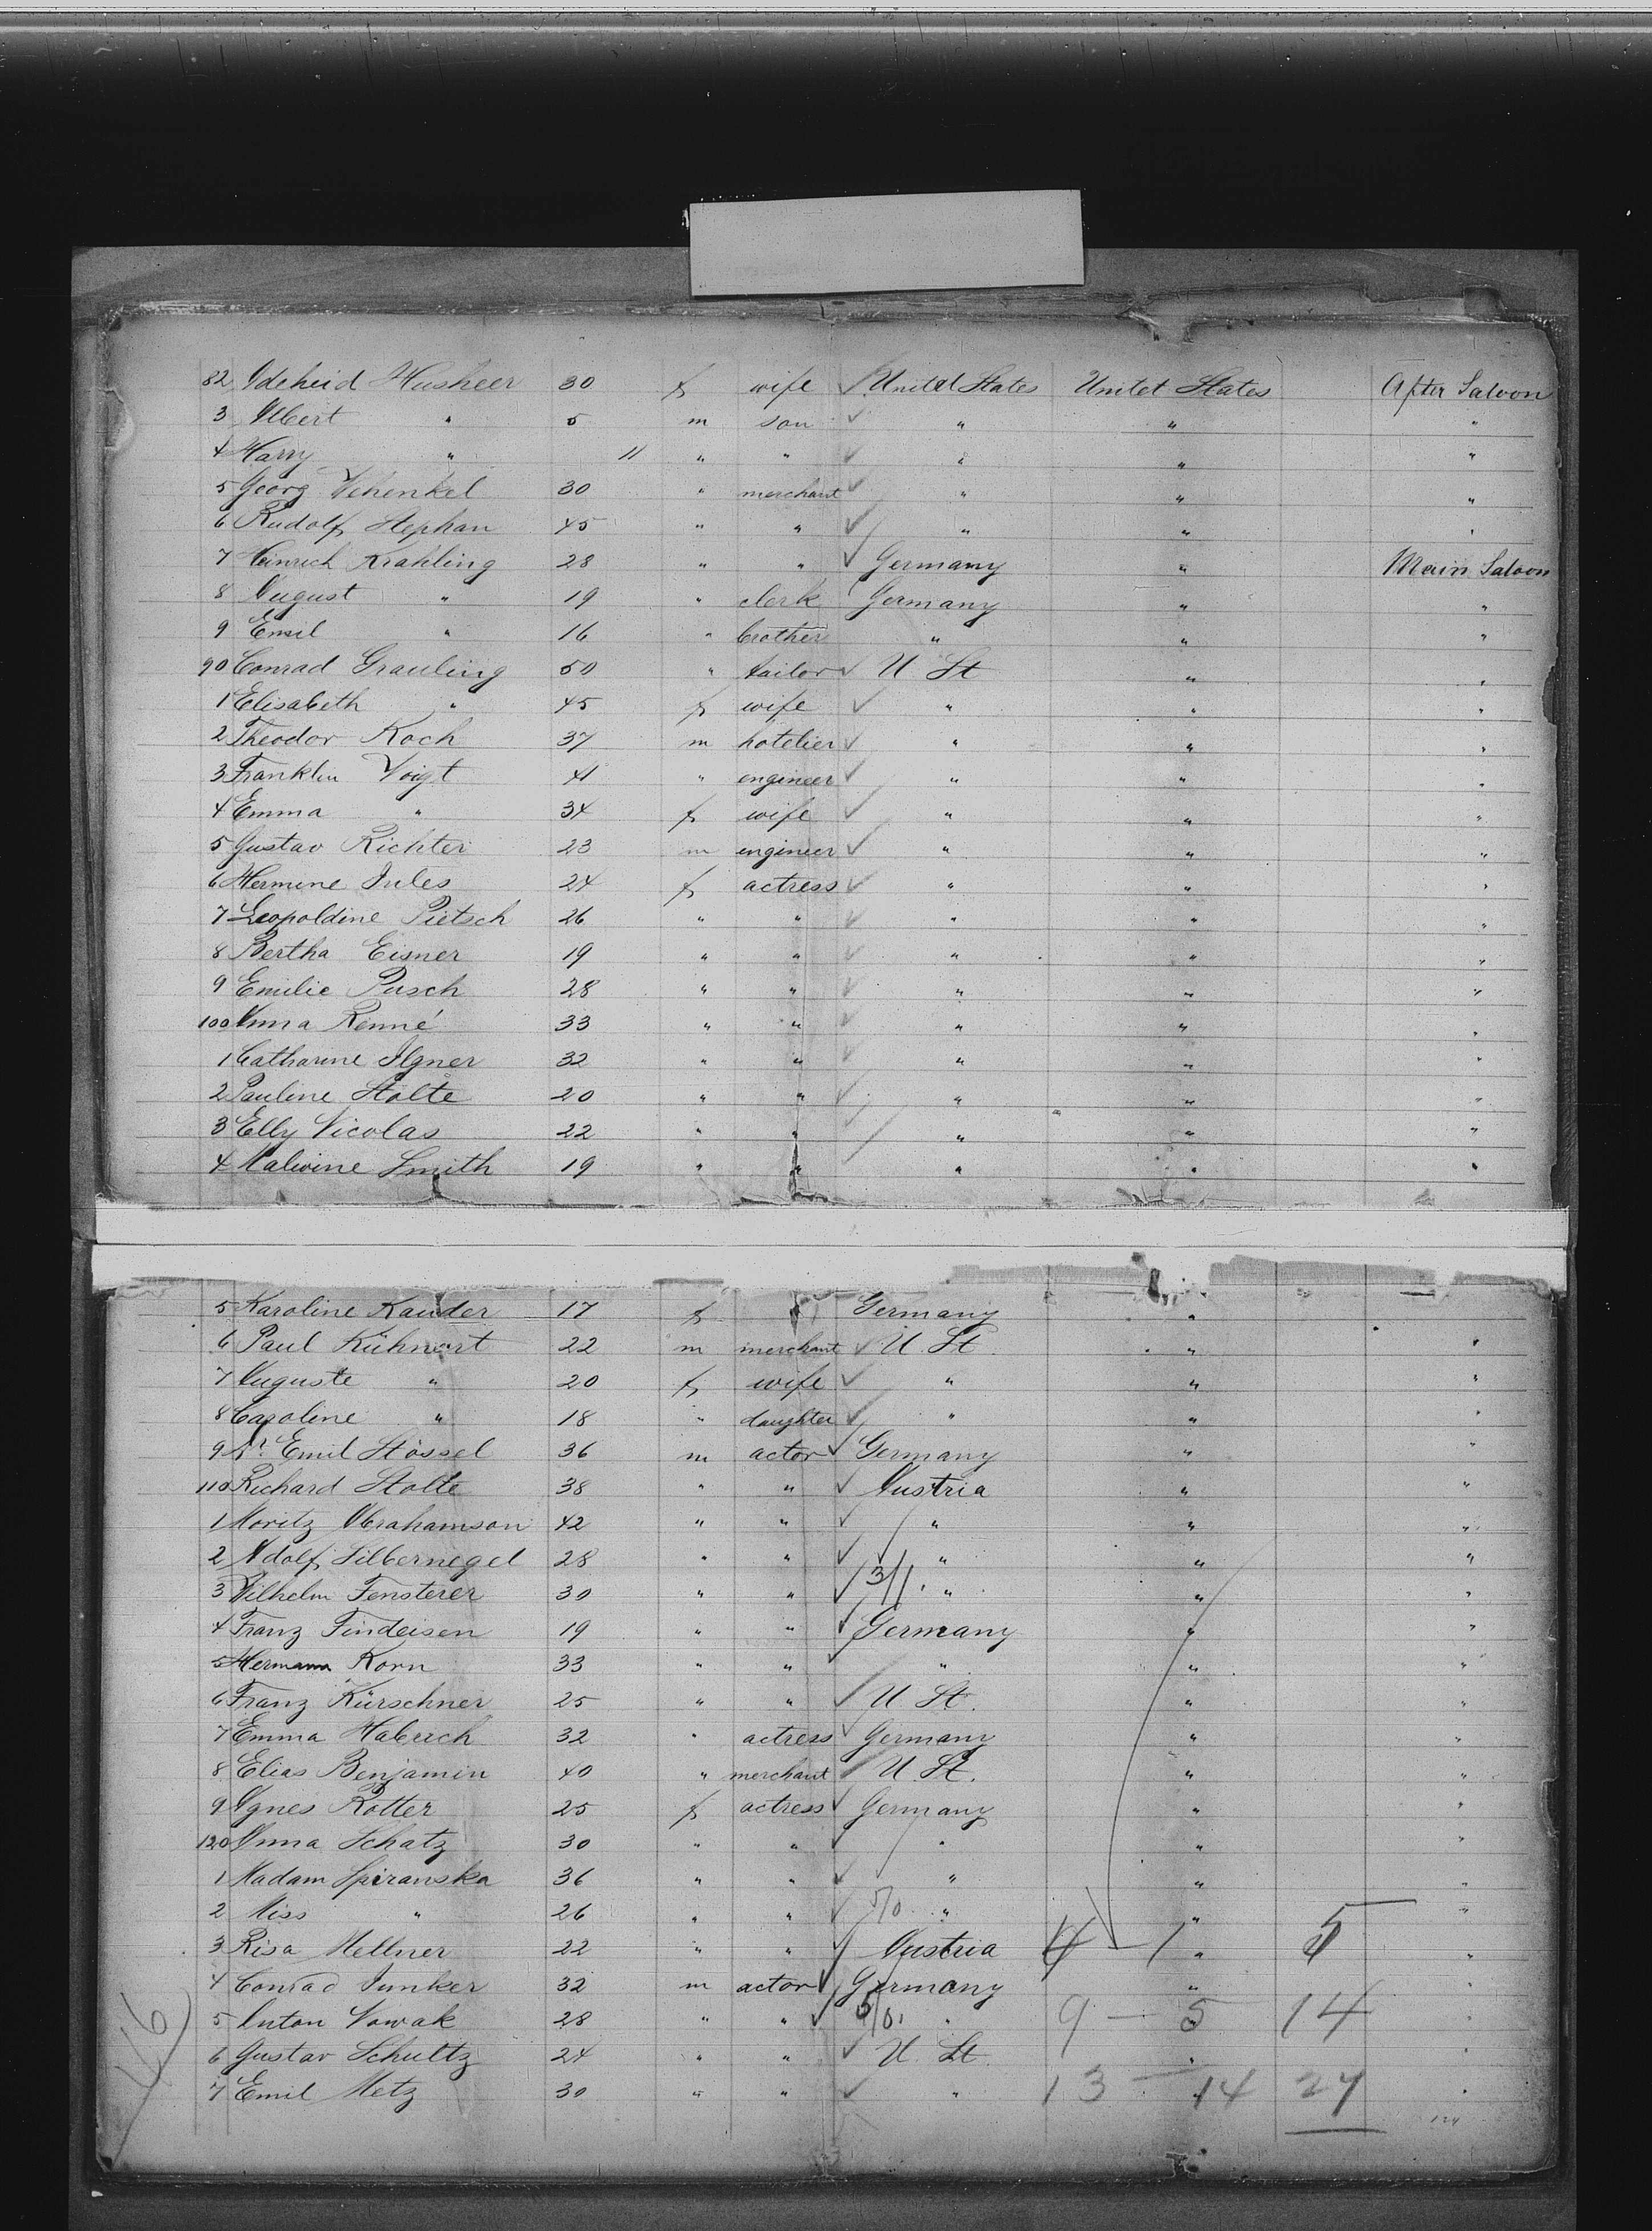 82 Adeheid Husheer 30 f wife United States Unitet States After Saloon
3 Albert " 5 m son " " "
4 Harry " 11 " " " " "
5 Georg Schenkel 30 " merchant " " "
6 Rudolf Stephan 45 " " " " "
7 Heinrich Krahling 28 " " Germany " Main Saloon
8 August " 19 " clerk Germany " "
9 Emil " 16 " brother " " "
90 Conrad Grauling 50 " tailor U St " "
1 Elisabeth " 45 f wife " " "
2 Theodor Koch 37 m hotelier " " "
3 Franklin Voigt 41 " engineer " " "
4 Emma " 34 f wife " " "
5 Gustav Richter 23 m engineer " " "
6 Hermine Jules 24 f actress " " "
7 Leopoldine Pietsch 26 " " " " "
8 Bertha Eisner 19 " " " " "
9 Emilie Pusch 28 " " " " "
100 Anna Renné 33 " " " " "
1 Catharine Ilgner 32 " " " " "
2 Pauline Stolte 20 " " " " "
3 Elly Nicolas 22 " " " " "
4 Malwine Smith 19 " " " " "
5 Karoline Kauder 17 f " Germany "
6 Paul Kühnert 22 m merchant U. St. " "
7 Auguste " 20 f wife " " "
8 Caroline " 18 " daughter " " "
9 Dr. Emil Stössel 36 m actor Germany " "
110 Richard Stolte 38 " " Austria " "
1 Moritz Abrahamson 42 " " " " "
2 Adolf Silbernegel 28 " " " " "
3 Wilhelm Fensterer 30 " " 3/1. " " "
4 Franz Findeisen 19 " " Germany " "
5 Hermann Korn 33 " " " " "
6 Franz Kürschner 25 " " U St. " "
7 Emma Haberich 32 " actress Germany " "
8 Elias Benjamin 40 " merchant U. St. " "
9 Agnes Rotter 25 f actress Germany " "
120 Anna Schatz 30 " " " " "
1 Madam Spiranska 36 " " " " "
2 Miss " 26 " " 5/0 " " "
3 Risa Mellner 22 " " Austria 4 — 1 " 5 "
4 Conrad Junker 32 m actor Germany " "
5 Anton Nowak 28 " " 5/0. " 9 — 5 14 "
6 Gustav Schultz 24 " " U St. " "
7 Emil Metz 30 " " " 13 — 14 27 "